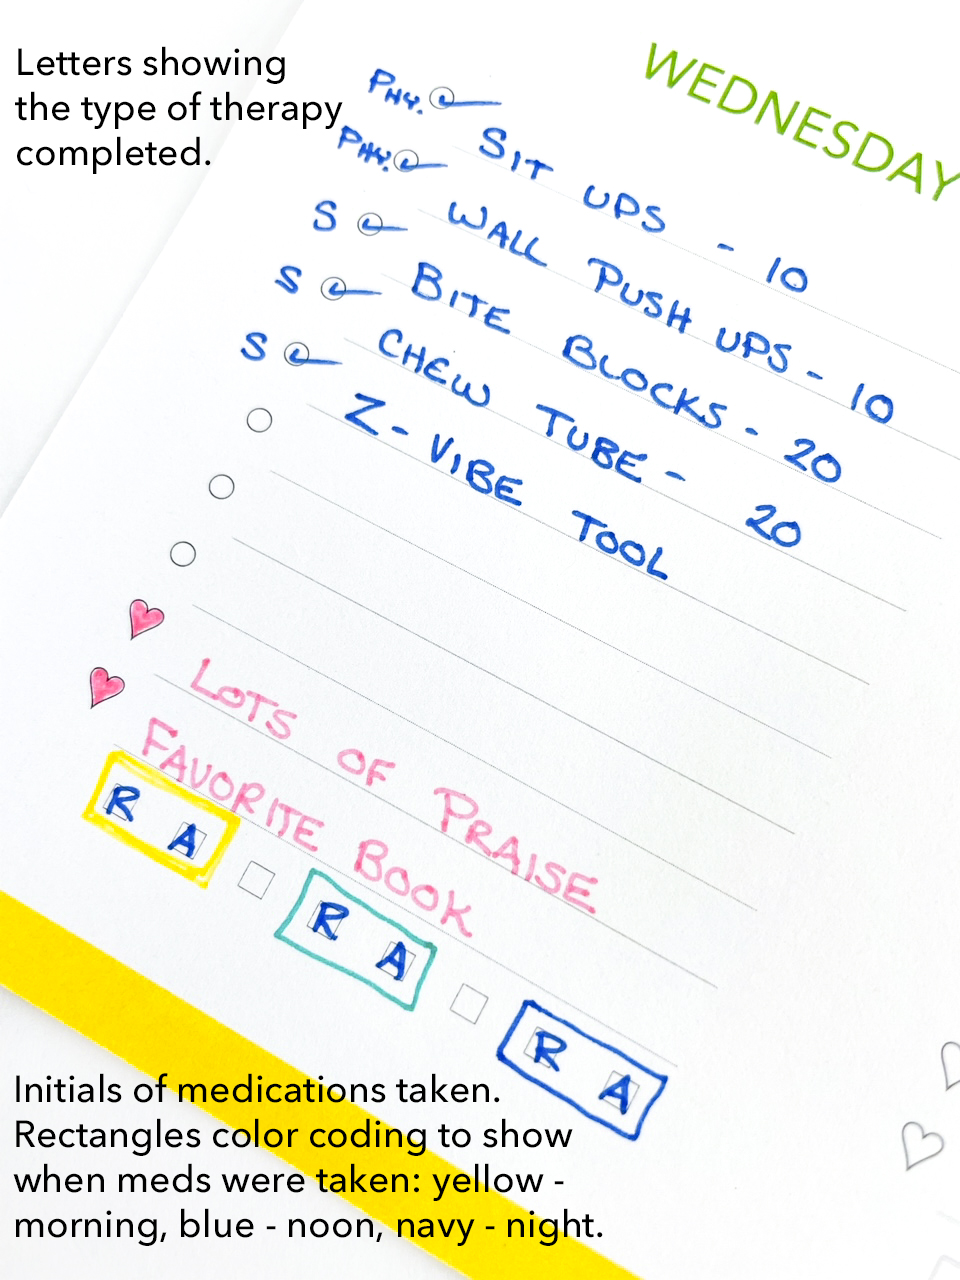 Letters showing
the type of therapy
completed.
WEDNESDAY
PHY. SIT UPS - 10
PHY. WALL PUSH UPS - 10
S BITE BLOCKS - 20
S CHEW TUBE - 20
S Z-VIBE TOOL
LOTS OF PRAISE
FAVORITE BOOK
R A R A R A
Initials of medications taken.
Rectangles color coding to show
when meds were taken: yellow -
morning, blue - noon, navy - night.